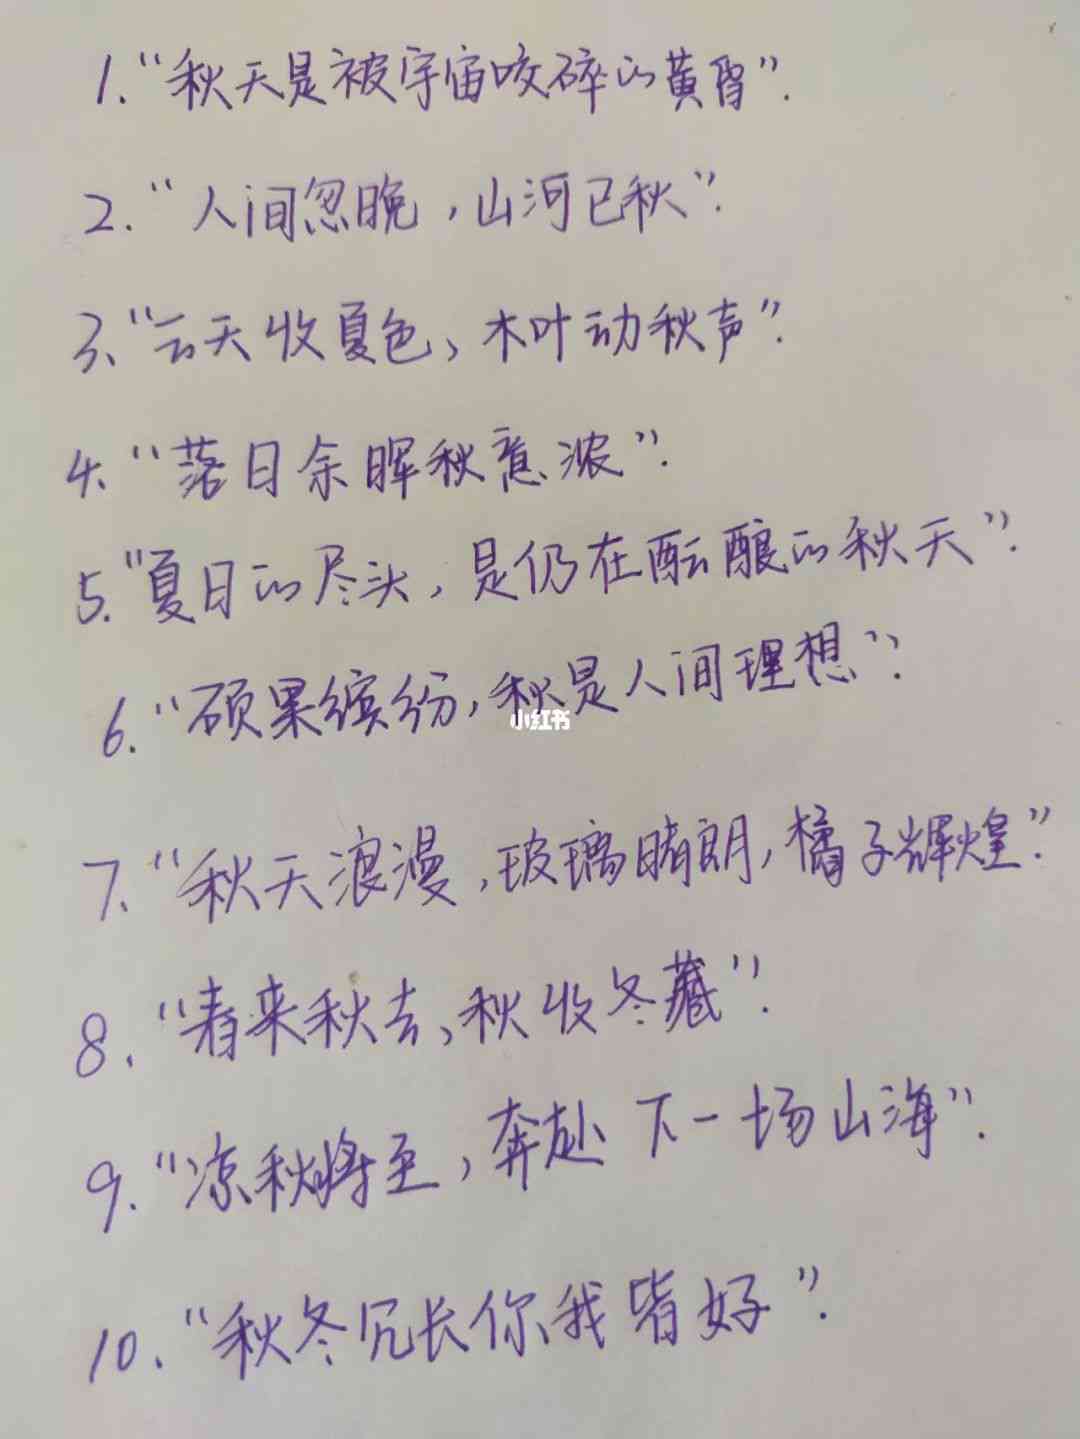 1. “秋天是被宇宙咬碎的黄昏”.
2. “人间忽晚，山河已秋”.
3、“云天收夏色、木叶动秋声”.
4、“落日余晖秋意浓”.
5. “夏日的尽头，是仍在酝酿的秋天”.
6. “硕果缤纷，秋是人间理想”.
小红书
7、“秋天浪漫，玻璃晴朗，橘子辉煌”.
8、“春来秋去、秋收冬藏”.
9. “凉秋将至，奔赴下一场山海”.
10、“秋冬冗长你我皆好”.